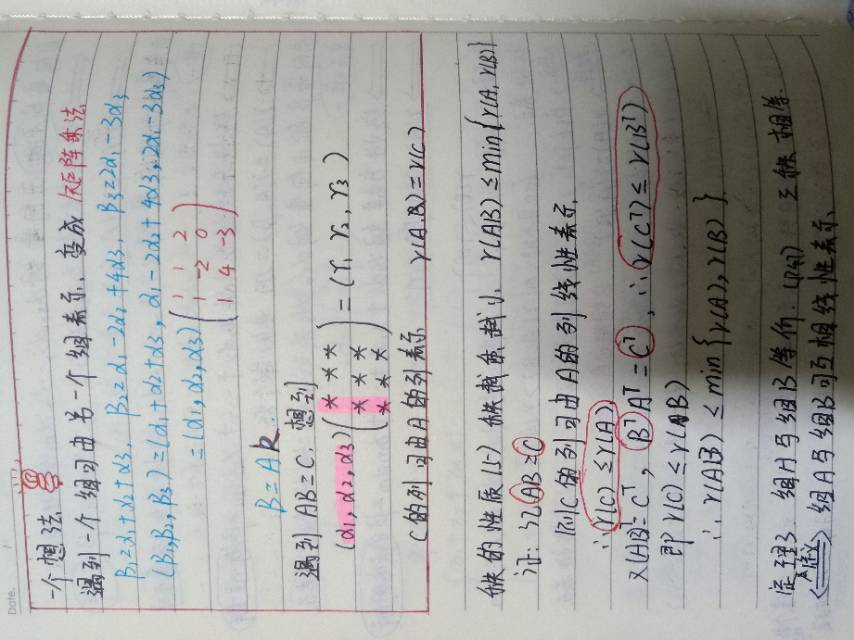 Date.
一个想法
遇到一个组可由另一个组表示，变成矩阵乘法
β₁=α₁+α₂+α₃, β₂=α₁-2α₂+4α₃, β₃=2α₁-3α₃
(β₁,β₂,β₃)=(α₁+α₂+α₃, α₁-2α₂+4α₃, 2α₁-3α₃)
=(α₁,α₂,α₃)(1 1 2
1 -2 0
1 4 -3)
B=AK
遇到AB=C, 想到
(α₁,α₂,α₃)(* * *
* * *
* * *)=(γ₁,γ₂,γ₃)
C的列可由A的列表示 γ(A,B)=γ(C)
秩的性质(5) 秩越乘越小, γ(AB)≤min{γ(A,γ(B)}
证: 记AB=C
则C的列可由A的列线性表示
∴γ(C)≤γ(A)
又(AB)=Cᵀ, BᵀAᵀ=Cᵀ, ∴γ(Cᵀ)≤γ(Bᵀ)
即γ(C)≤γ(AB)
∴γ(AB)≤min{γ(A),γ(B)}
定理3. 组A与组B等价 三秩相等.
⟺ 组A与组B可互相线性表示